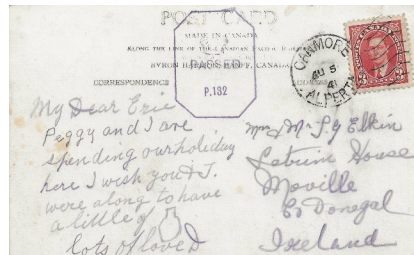 POST CARD
MADE IN CANADA
ALONG THE LINE OF THE CANADIAN PACIFIC
BYRON HARMON, BANFF, CANADA
PASSED
P.132
CORRESPONDENCE
CANMORE
AU 5
41
ALBERTA
3
My Dear Eric
Peggy and I are
spending our holiday
here I wish you & J.
were along to have
a little of
lots of love D
Mr Elkin
House
Moville
Co Donegal
Ireland